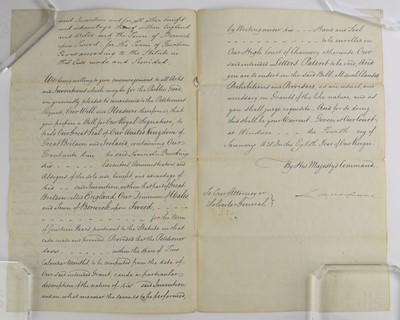 and Invention and for all the benefit
and advantage thereof within England
and Wales and the Town of Berwick
upon Tweed - for the Term of Fourteen
Years according to the Statute in
that Case made and Provided
We being willing to give encouragement to all Arts
and Inventions which may be for the Public Good
are graciously pleased to condescend to the Petitioners
request. Our Will and Pleasure therefore is that
you prepare a Bill for Our Royal Signature, to
pass Our Great Seal of Our United Kingdom of
Great Britain and Ireland, containing Our
Grant unto him the said
his - - - Executors Administrators and
Assigns of the sole use, benefit and advantage of
his - - said Invention, within that part of Great
Britain called England, Our Dominion of Wales
and Town of Berwick upon Tweed, - -
for the term
of fourteen Years pursuant to the Statute in that
case made and provided. Provided that the Petitioner
does - - - within the space of Two
Calendar Months, to be computed from the date of
Our said intended Grant, cause a particular
description of the nature of his said Invention
and in what manner the same is to be performed,
by Writing under his - - Hand and Seal
to be inrolled in
Our High Court of Chancery otherwise Our
said intended Letters Patent to be void. And
you are to insert in the said Bill, all such Clauses
Prohibitions and Provisoes, as are usual, and
necessary in Grants of the like nature, and as
you shall judge requisite. And for so doing
this shall be your Warrant. Given at Our Court,
at Windsor - - the Fourth day of
January 18 In the Eighth Year of Our Reign.
By His Majesty's Command.
To Our Attorney or
Solicitor General